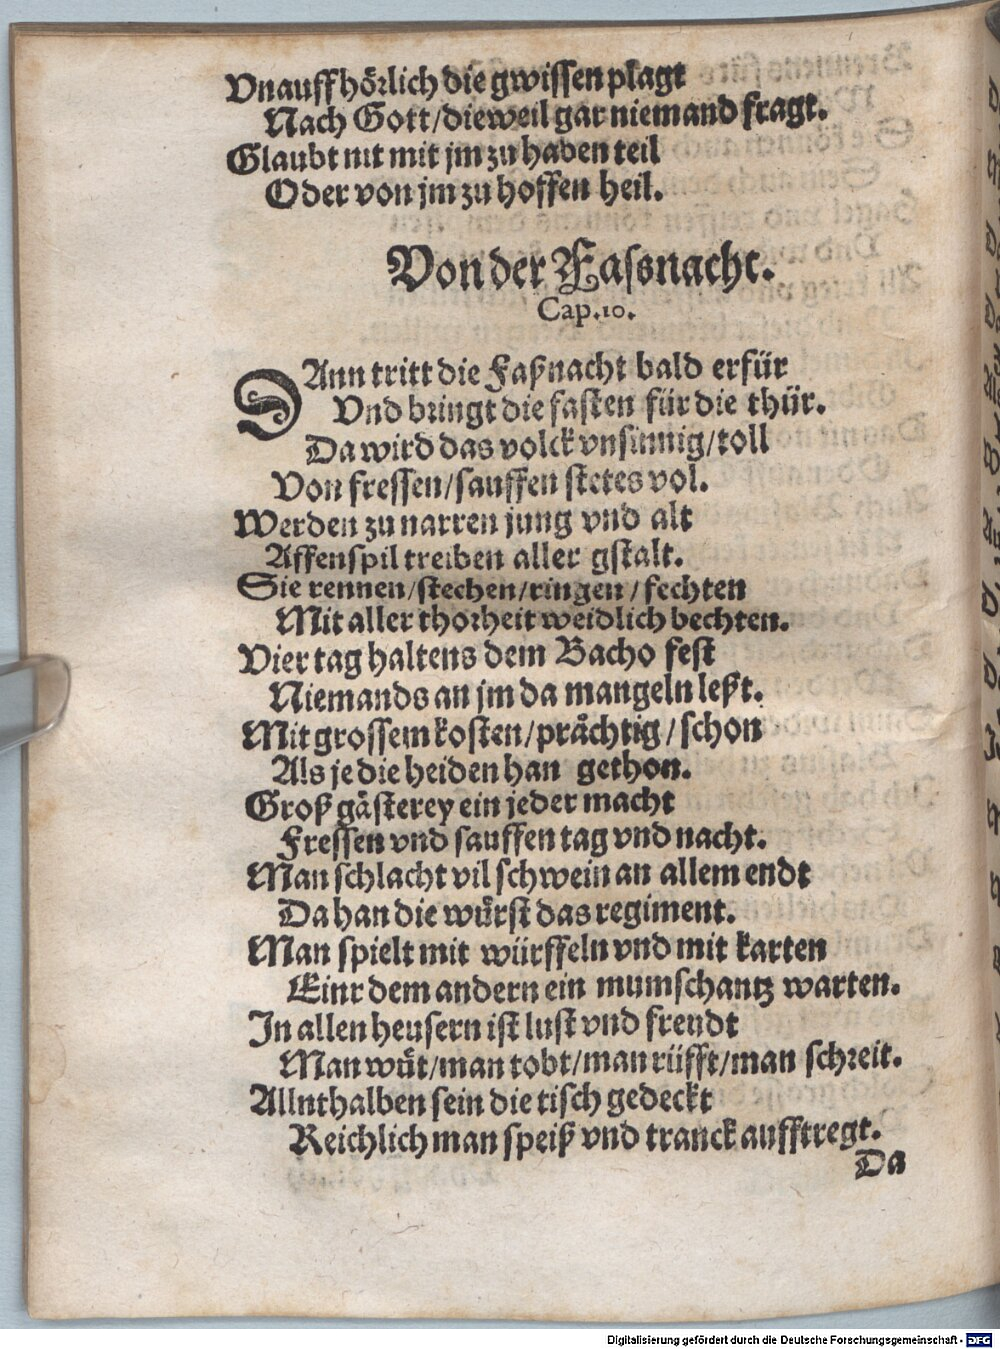 Vnauffhoͤrlich die gwissen plagt
Nach Gott/dieweil gar niemand fragt.
Glaubt nit mit jm zu haben teil
Oder von jm zu hoffen heil.
Von der Fassnacht.
Cap. 10.
DAnn tritt die Faßnacht bald erfür
Vnd bringt die fasten für die thür.
Da wird das volck vnsinnig/toll
Von fressen/sauffen stetes vol.
Werden zu narren jung vnd alt
Affenspil treiben aller gstalt.
Sie rennen/stechen/ringen/fechten
Mit aller thorheit weidlich bechten.
Vier tag haltens dem Bacho fest
Niemands an jm da mangeln leßt.
Mit grossem kosten/praͤchtig/schon
Als je die heiden han gethon.
Groß gaͤsterey ein jeder macht
Fressen vnd sauffen tag vnd nacht.
Man schlacht vil schwein an allem endt
Da han die wuͤrst das regiment.
Man spielt mit würffeln vnd mit karten
Einr dem andern ein mumschantz warten.
In allen heusern ist lust vnd freudt
Man wuͤt/man tobt/man rüfft/man schreit.
Allnthalben sein die tisch gedeckt
Reichlich man speiß vnd tranck aufftregt.
Da
Digitalisierung gefördert durch die Deutsche Forschungsgemeinschaft - DFG